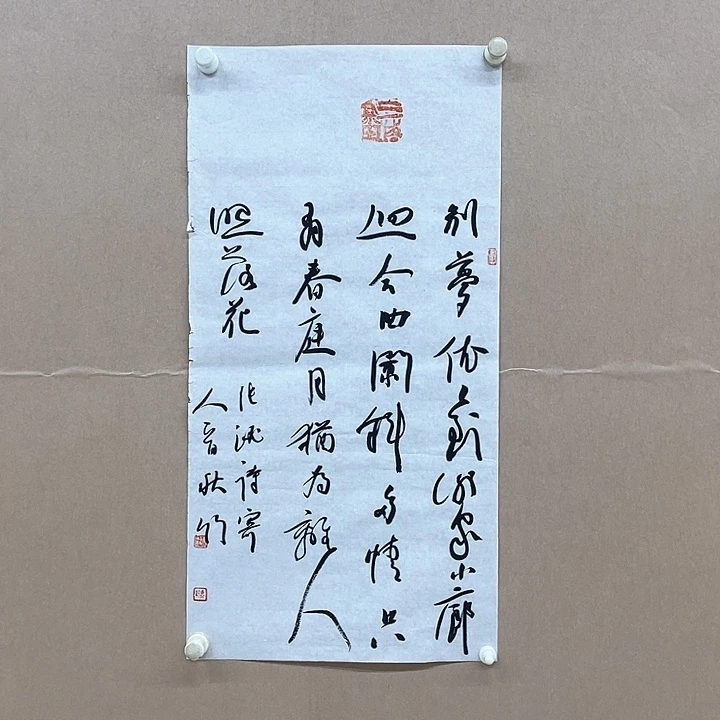 别夢依々到謝家小廊
迴合曲闌斜多情只
有春庭月猶為離人
照落花
張泌詩寄
人 秋竹